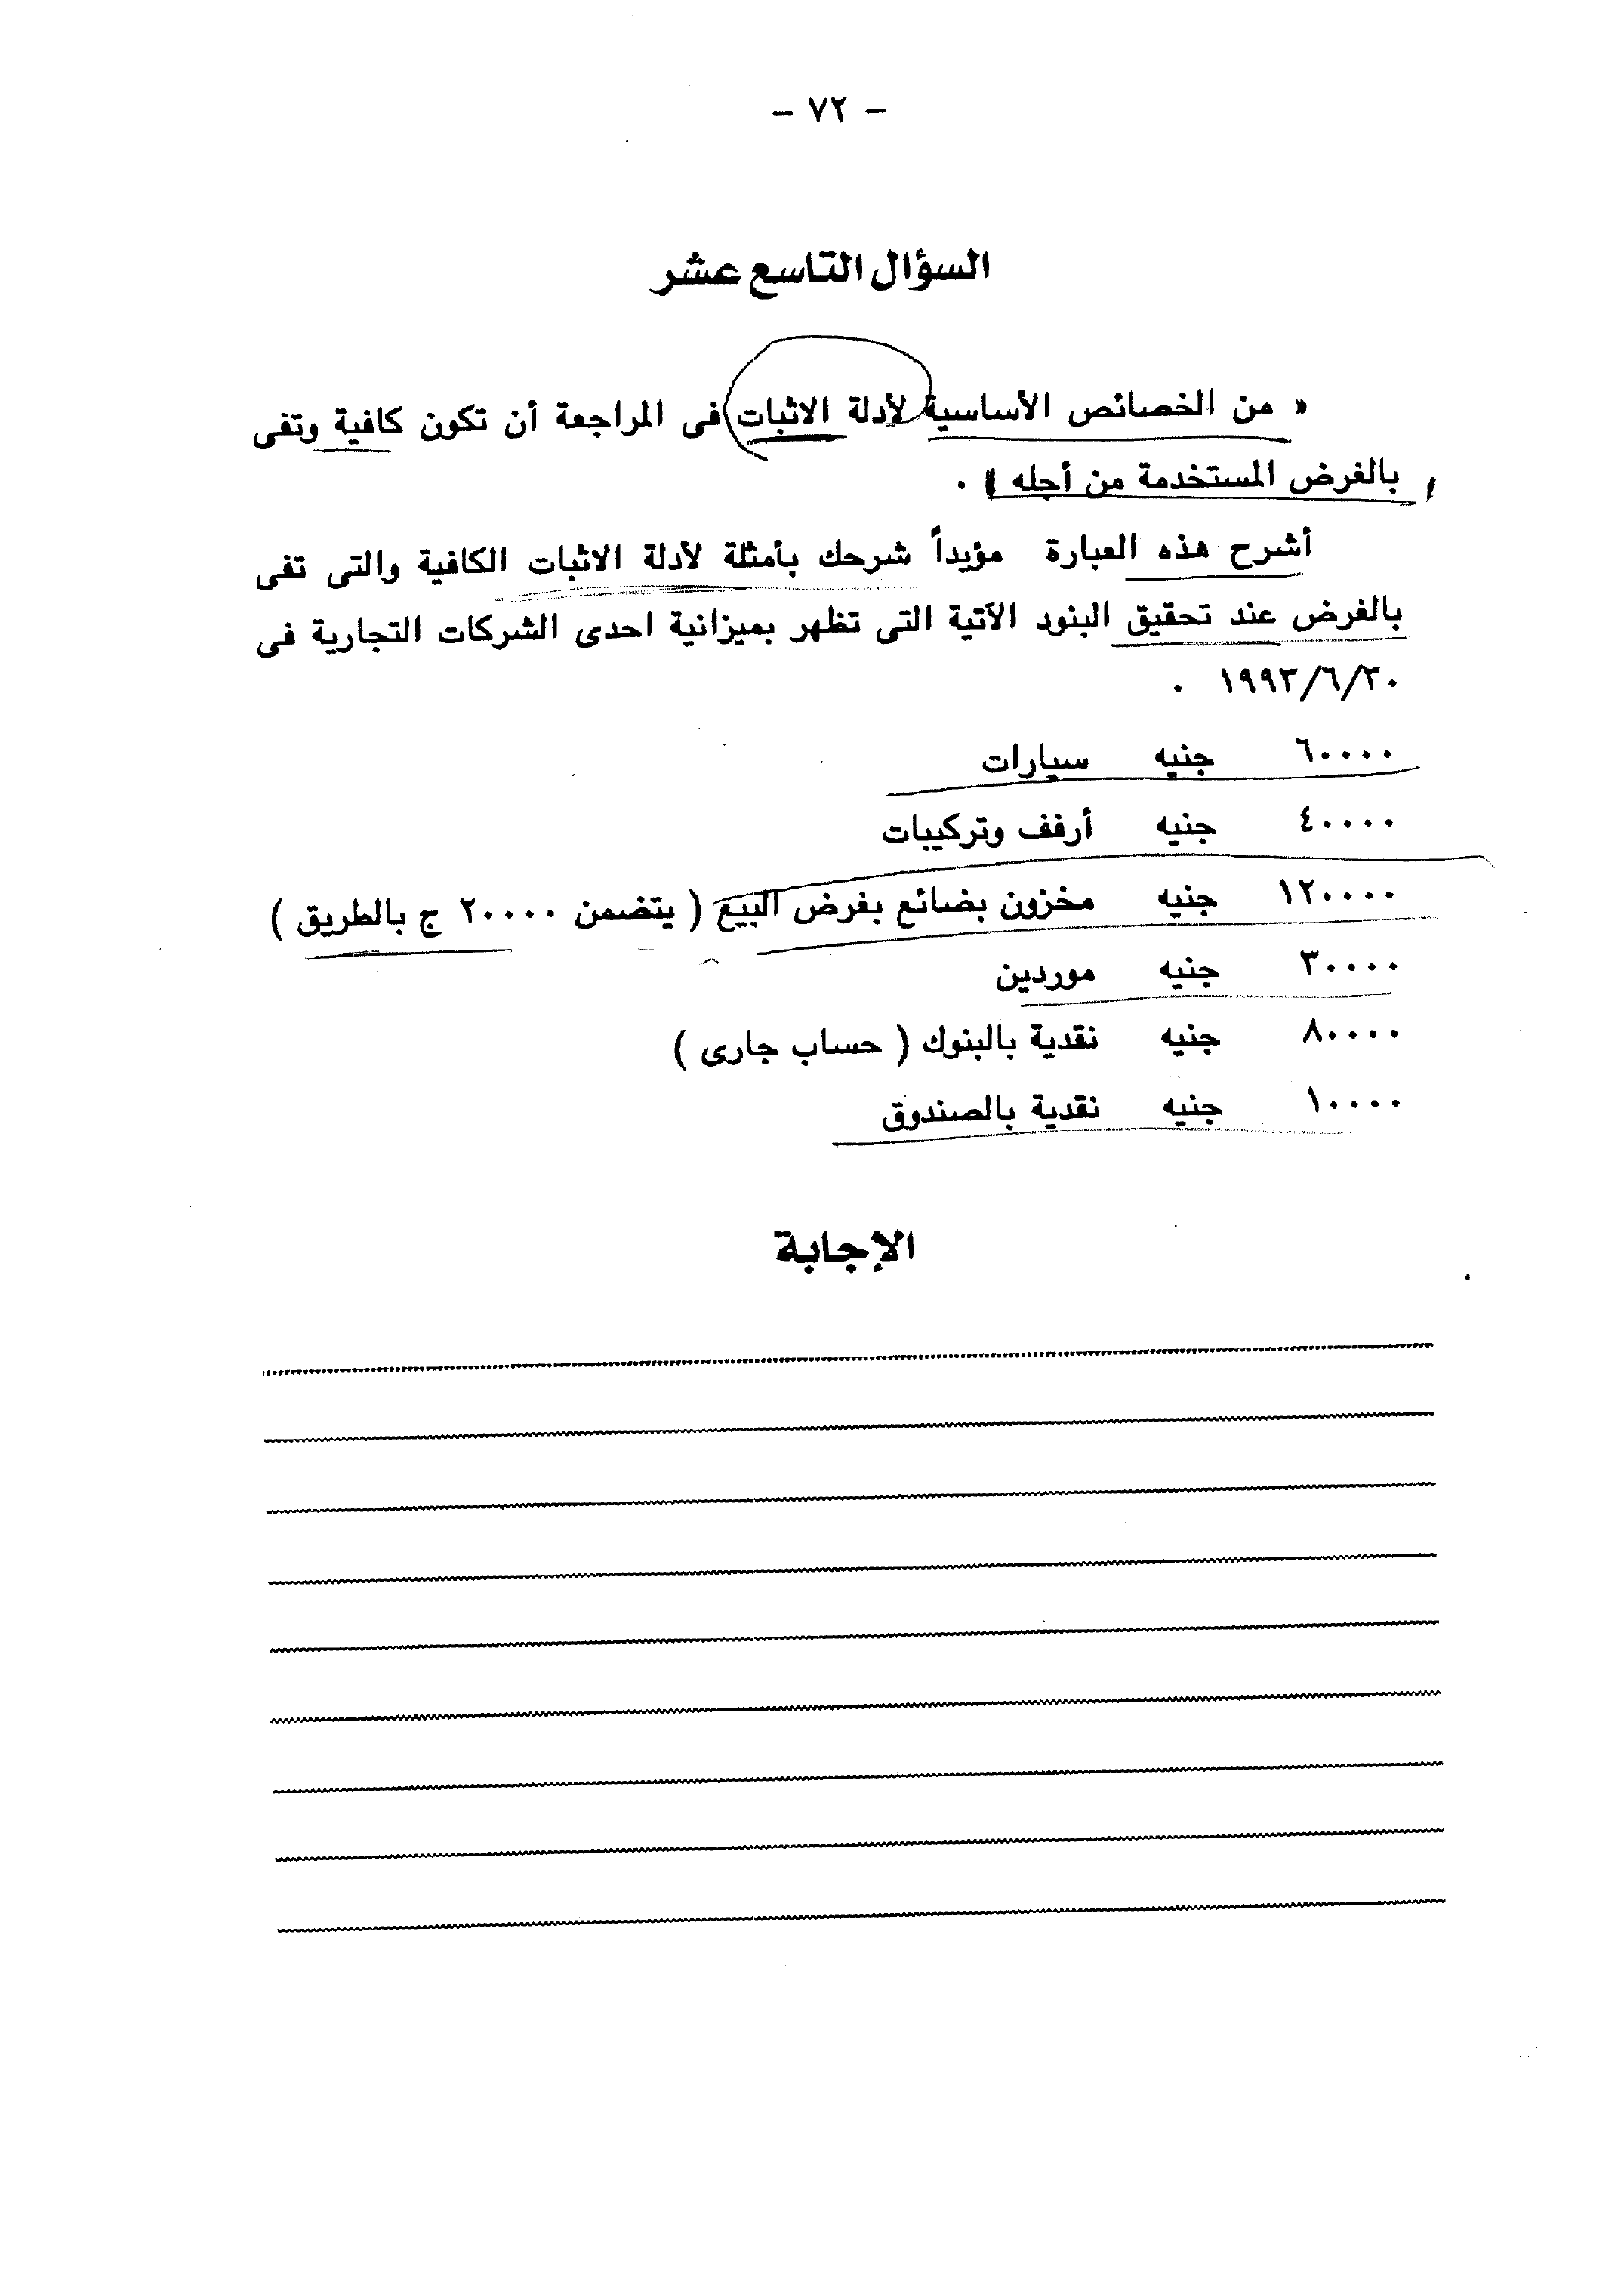 - ٧٢ -
السؤال التاسع عشر
« من الخصائص الأساسية لأدلة الاثبات فى المراجعة أن تكون كافية وتفى
بالغرض المستخدمة من أجله » .
أشرح هذه العبارة مؤيداً شرحك بأمثلة لأدلة الاثبات الكافية والتى تفى
بالغرض عند تحقيق البنود الآتية التى تظهر بميزانية احدى الشركات التجارية فى
١٩٩٣/٦/٣٠ .
٦٠٠٠٠ جنيه سيارات
٤٠٠٠٠ جنيه أرفف وتركيبات
١٢٠٠٠٠ جنيه مخزون بضائع بغرض البيع ( يتضمن ٢٠٠٠٠ ج بالطريق )
٣٠٠٠٠ جنيه موردين
٨٠٠٠٠ جنيه نقدية بالبنوك ( حساب جارى )
١٠٠٠٠ جنيه نقدية بالصندوق
الإجابة